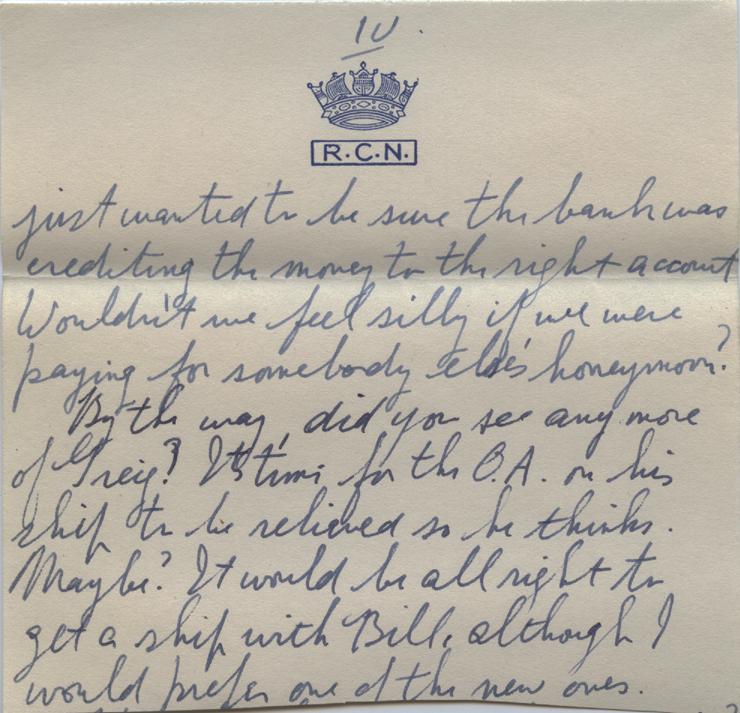 IV
R.C.N.
just wanted to be sure the bank was
crediting the money to the right account
Wouldn't we feel silly if we were
paying for somebody else's honeymoon?
By the way, did you see any more
of Greig? It's time for the O.A. on his
ship to be relieved so he thinks.
Maybe? It would be all right to
get a ship with Bill, although I
would prefer one of the new ones.